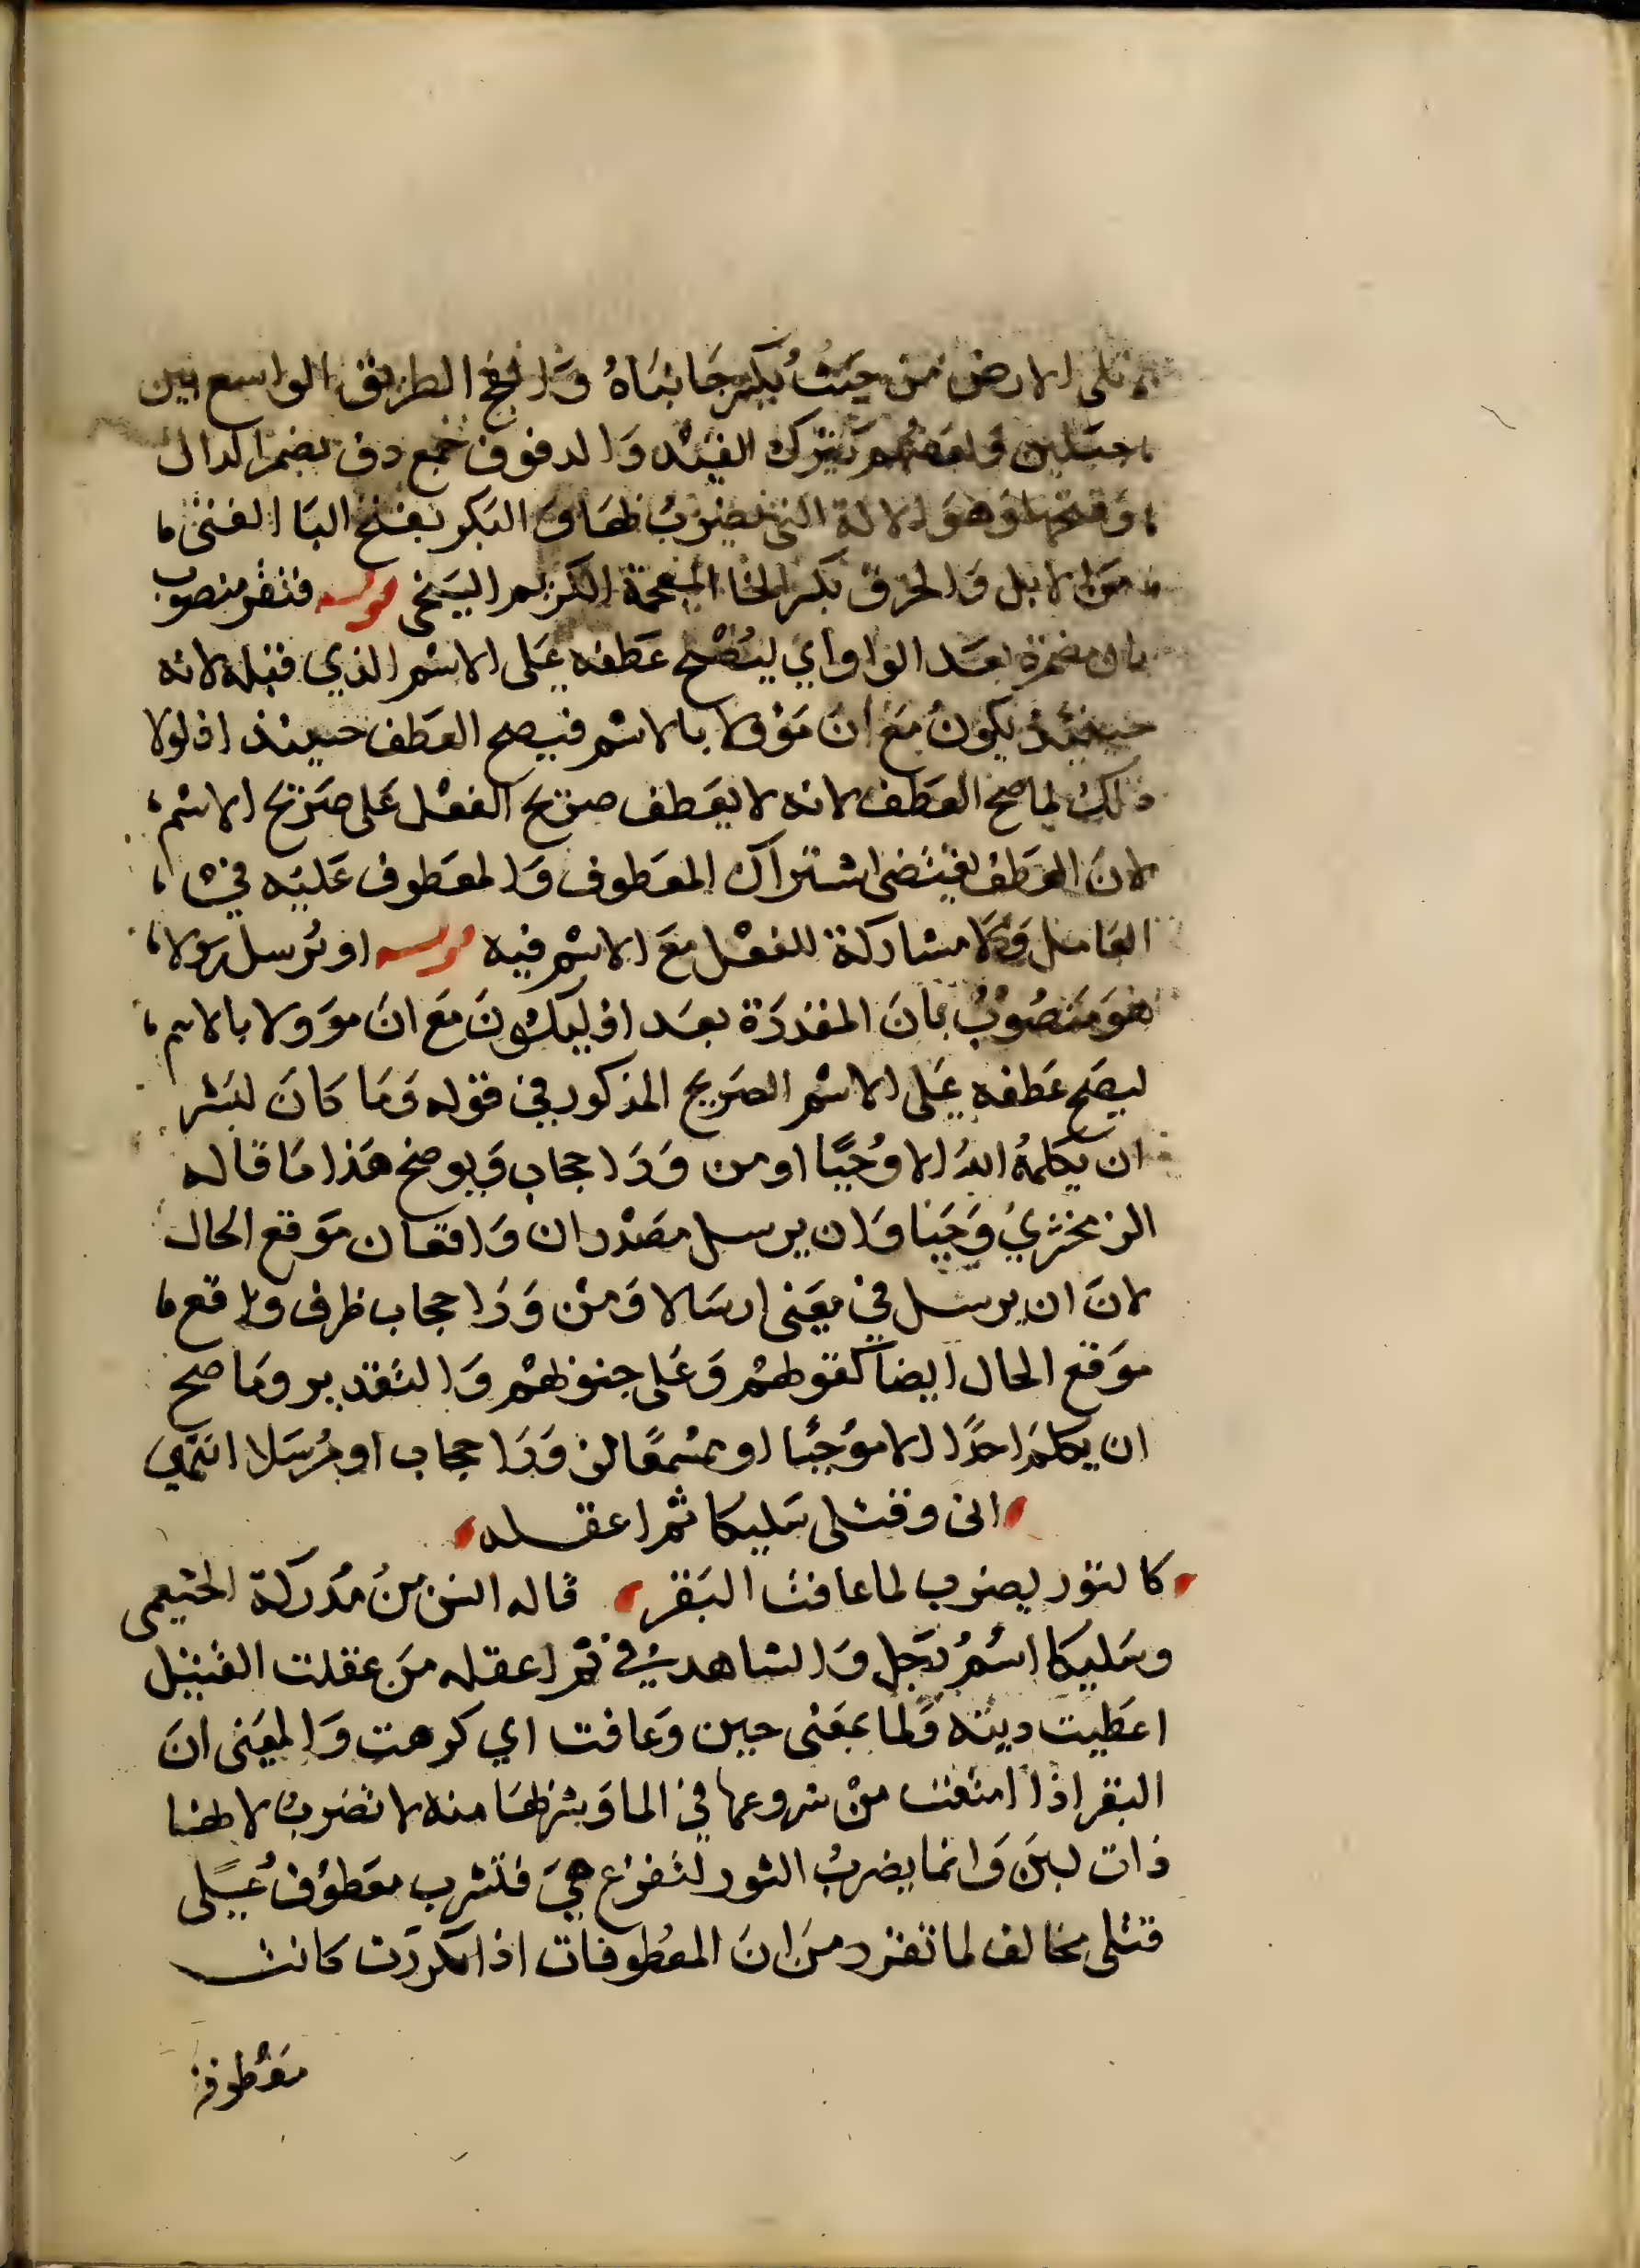 تلى الارض من حيث يكسر جانباه والفج الطريق الواسع بين
جبلين وبعضهم يترك القيد والدفوف جمع دف بضم الدال
وفتحها وهو الالة التي يضرب بها والبكر بفتح البا الفتى
من الابل والخرق بكسر الخا المعجمة الكريم السخى قوله فتقر منصوب
بان مضمرة بعد الواو اي ليصح عطفه على الاسم الذي قبله لانه
حينئذ يكون مع ان مؤولا بالاسم فيصح العطف حينئذ اذ لولا
ذلك لما صح العطف لانه لا يعطف صريح الفعل على صريح الاسم
لان العطف يقتضى اشتراك المعطوف والمعطوف عليه في
العامل ولا مشاركة للفعل مع الاسم فيه قوله او نرسل رسولا
هو منصوب بان المقدرة بعد او ليكون مع ان موولا بالاسم
ليصح عطفه على الاسم الصريح المذكور في قوله وما كان لبشر
ان يكلمه الله الا وحيا او من ورا حجاب ويوضح هذا ما قاله
الزمخشري وحيا وان يرسل مصدران واقعان موقع الحال
لان ان يرسل في معنى ارسالا ومن ورا حجاب ظرف واقع
موقع الحال ايضا كقولهم وعلى جنوبهم والتقدير وما صح
ان يكلم احدا الا موحيا او مسمعا من ورا حجاب او مرسلا انتهى
انى وقتلى سليكا ثم اعقله
كالثور يضرب لما عافت البقر قاله انس بن مدركة الخثعمى
وسليكا اسم رجل والشاهد في ثم اعقله من عقلت القتيل
اعطيت ديته ولما بمعنى حين وعافت اي كرهت والمعنى ان
البقر اذا امتنعت من شروعها في الما وشربها منه لا تضرب لانها
ذات لبن وانما يضرب الثور لتفزع هي فتشرب معطوف على
قتلى مخالف لما تقرر من ان المعطوفات اذا تكررت كانت
معطوفة